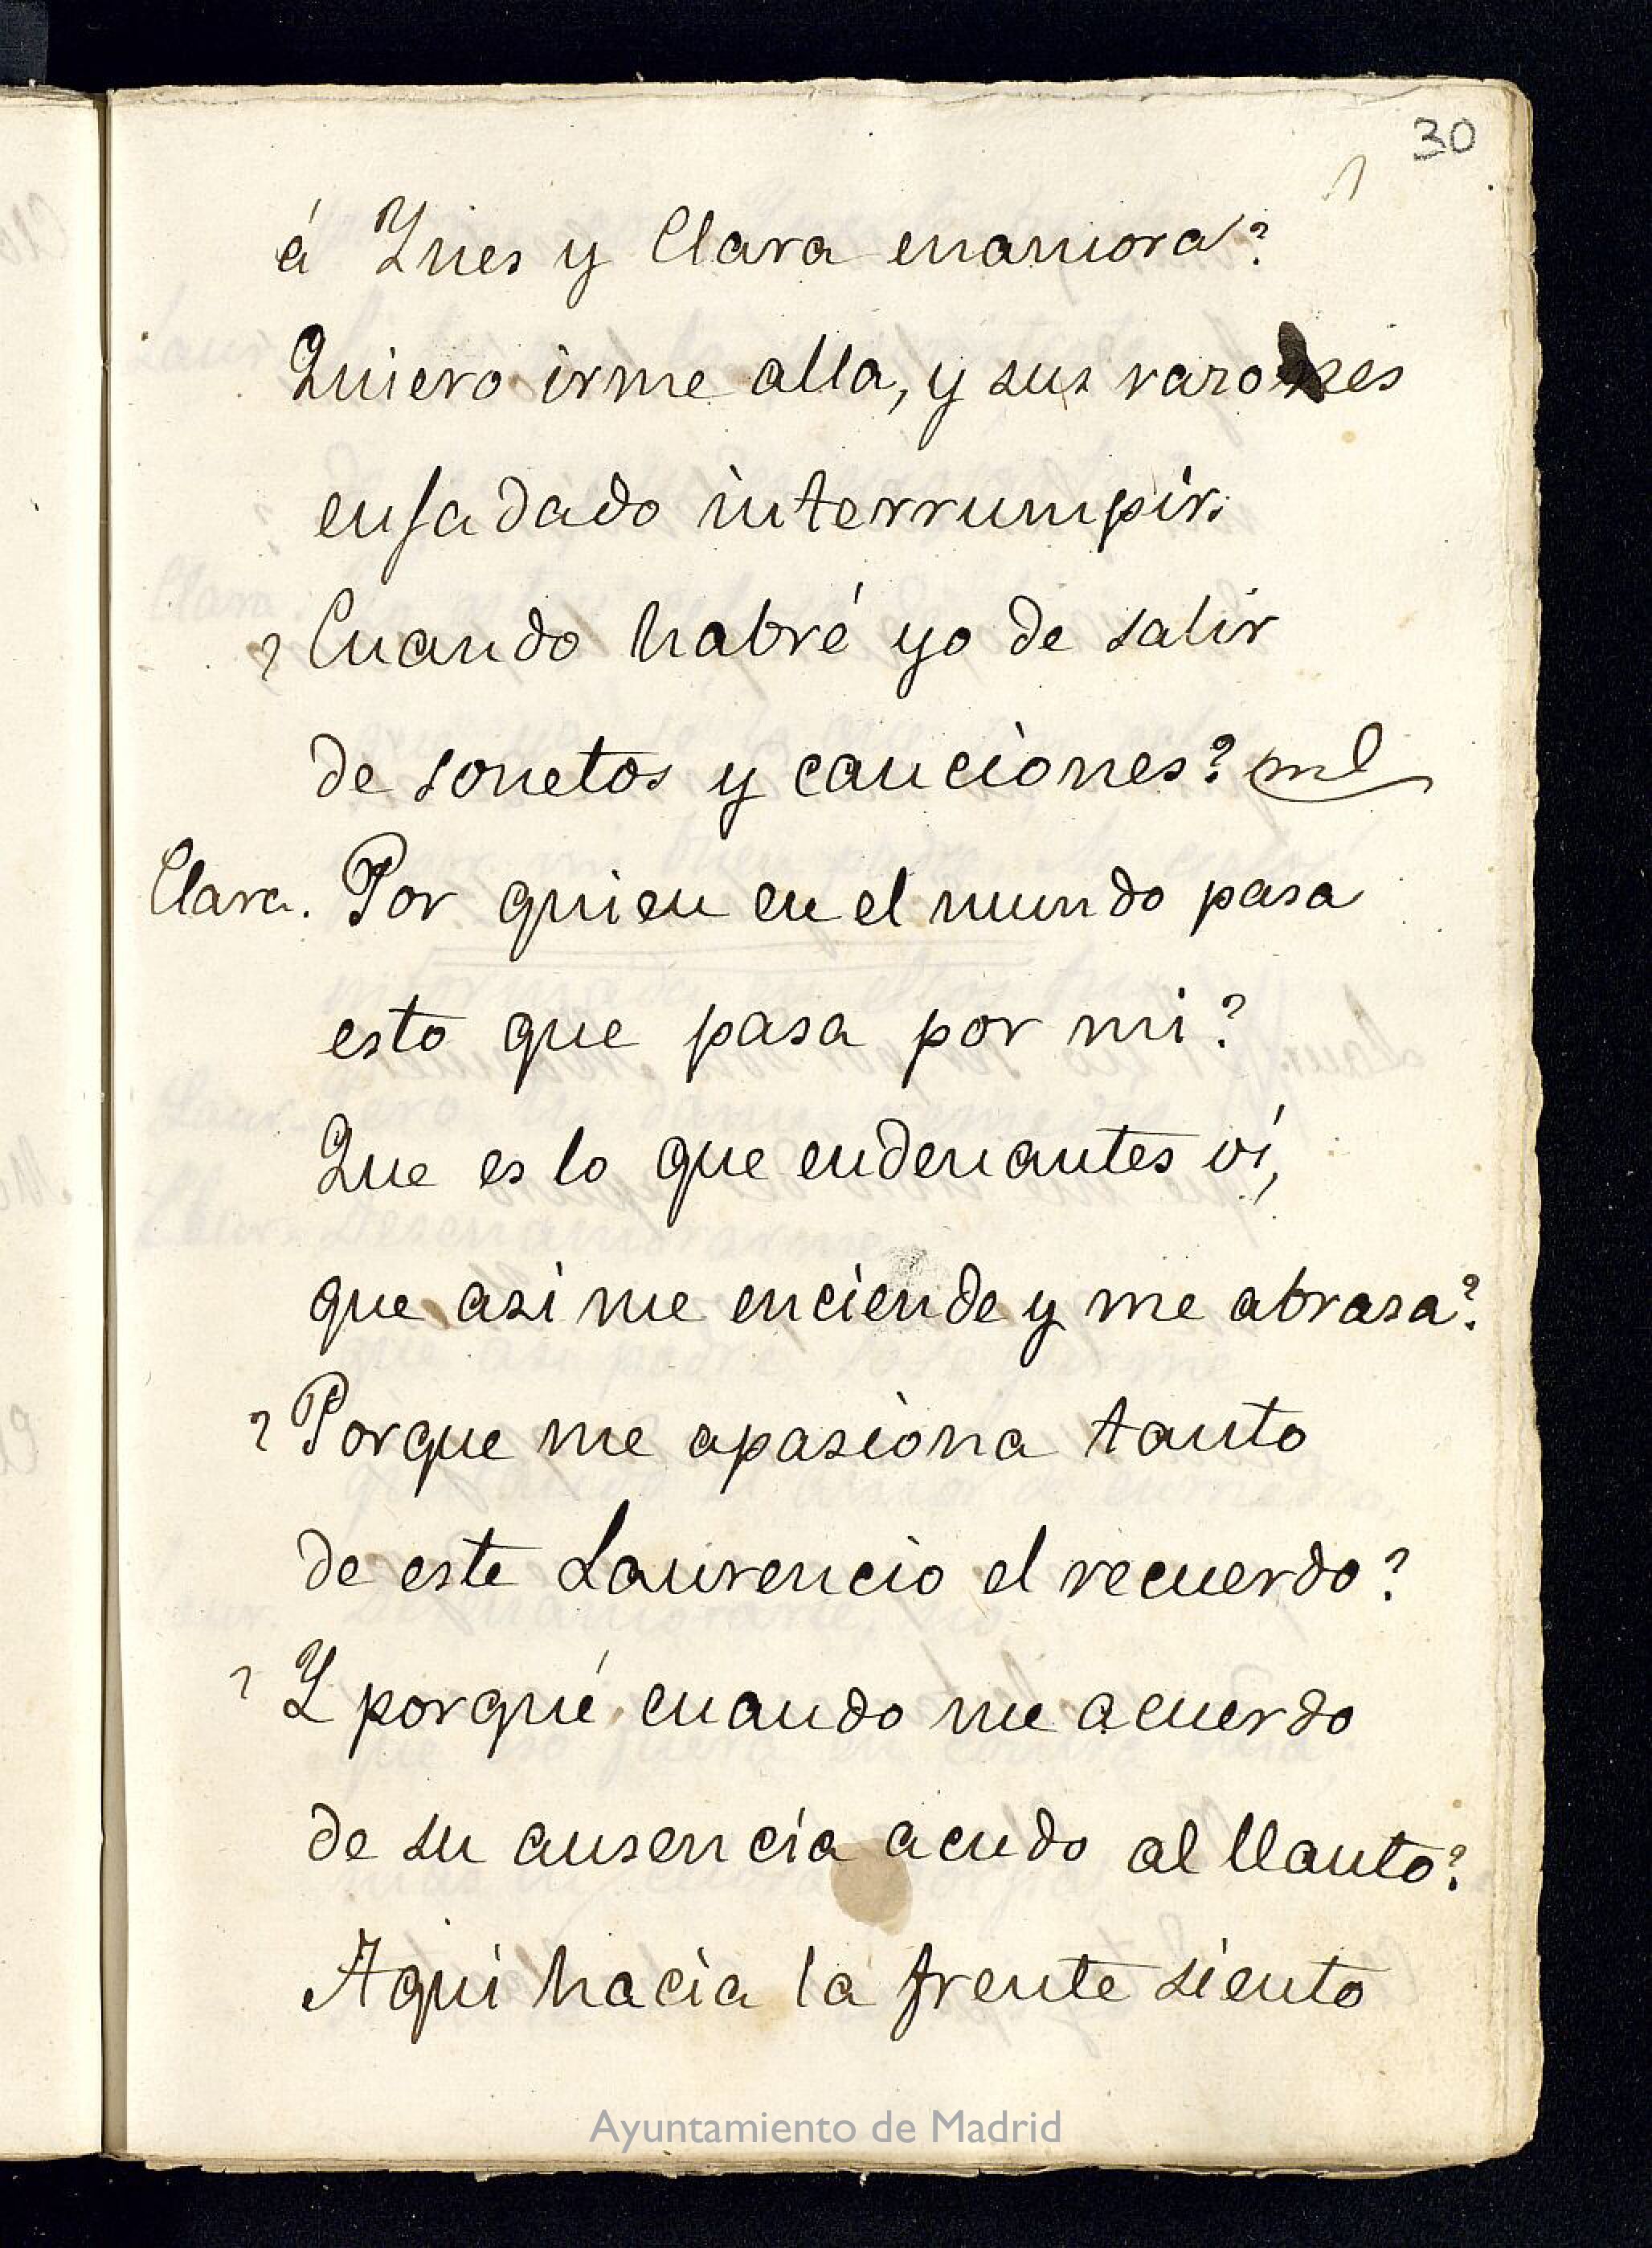 30
á Ynes y Clara enamora?
Quiero irme alla, y sus razones
enfadado interrumpir.
¿Cuando habré yo de salir
de sonetos y canciones?
Clara. Por quien en el mundo pasa
esto que pasa por mi?
Que es lo que endenantes ví,
que asi me enciende y me abrasa?
¿Porque me apasiona tanto
de este Laurencio el recuerdo?
¿Y porqué cuando me acuerdo
de su ausencia acudo al llanto?
Aqui hacia la frente siento
Ayuntamiento de Madrid